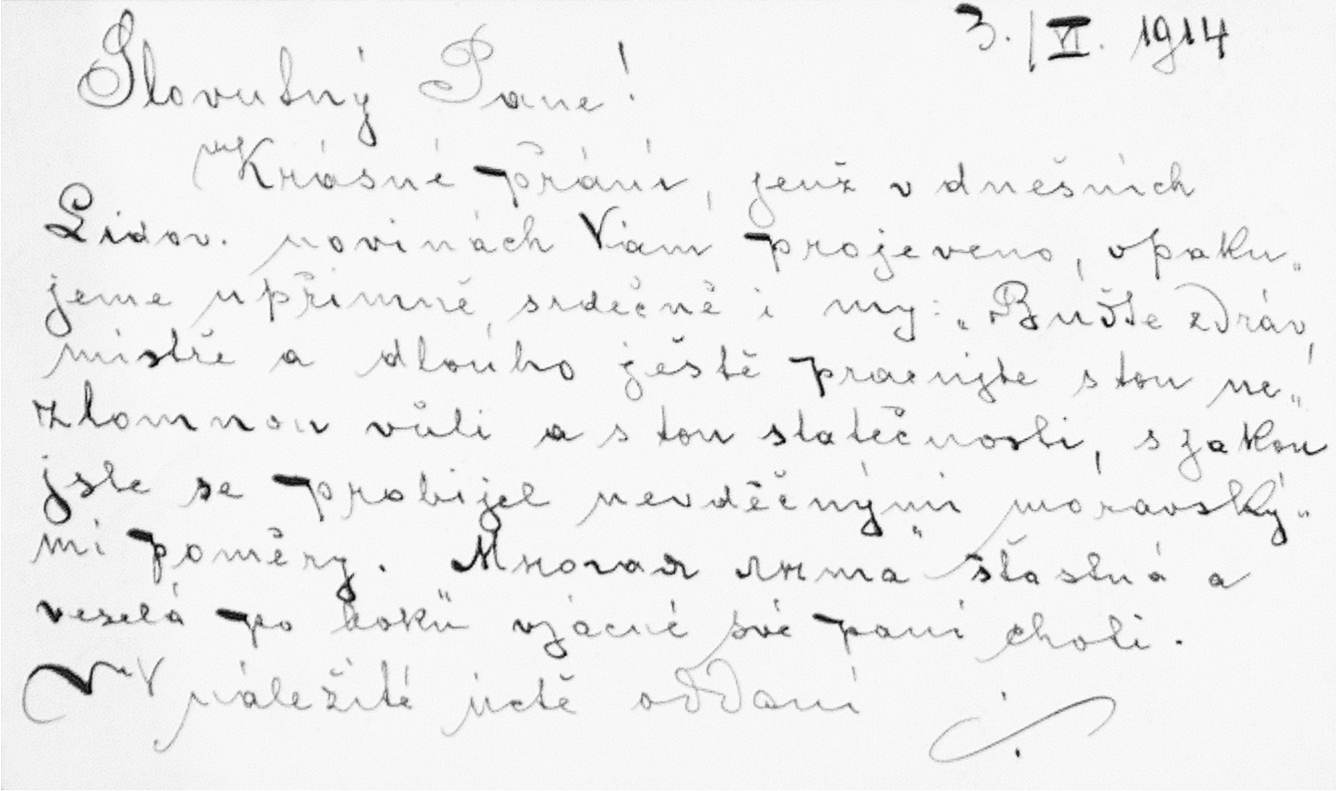 3./VI. 1914
Slovutný Pane!
Krásné přání, jenž v dnešních
Lidov. novinách Vám projeveno, opaku„
jeme upřímně, srdečně i my: „Buďte zdráv,
mistře a dlouho ještě pracujte s tou ne„
zlomnou vůli a s tou statečnosti, s jakou
jste se probíjel nevděčnými moravský„
mi poměry." Многая лѣта šťastná a
veselá po boku vzácné své paní choti.
V náležité úctě oddaní